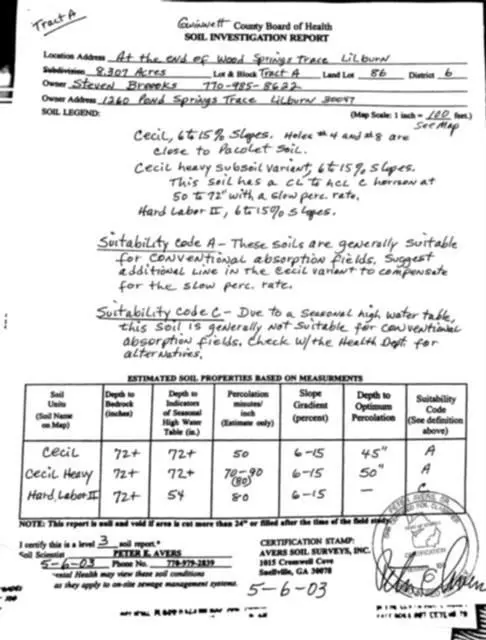 Tract A
Gwinnett County Board of Health
SOIL INVESTIGATION REPORT
Location Address At the end of Wood Springs Trace Lilburn
Subdivision 8.307 Acres Lot & Block Tract A Land Lot 86 District 6
Owner Steven Brooks 770-985-8622
Owner Address 1260 Pond Springs Trace Lilburn 30047
SOIL LEGEND: (Map Scale: 1 inch = 100 feet.)
See Map
Cecil, 6 to 15% Slopes. Holes #4 and #8 are
close to Pacolet Soil.
Cecil heavy subsoil variant, 6 to 15% Slopes.
This soil has a CL to HCL C horizon at
50 to 72" with a slow perc. rate.
Hard Labor II, 6 to 15% slopes.
Suitability Code A - These soils are generally suitable
for CONVENTIONAL absorption fields. Suggest
additional Line in the Cecil variant to compensate
for the slow perc. rate.
Suitability Code C - Due to a seasonal high water table,
this soil is generally not suitable for conventional
absorption fields. Check w/the Health Dept for
alternatives.
ESTIMATED SOIL PROPERTIES BASED ON MEASURMENTS
Soil Units (Soil Name on Map) Depth to Bedrock (inches) Depth to Indicators of Seasonal High Water Table (in.) Percolation minutes/ inch (Estimate only) Slope Gradient (percent) Depth to Optimum Percolation Suitability Code (See definition above)
Cecil 72+ 72+ 50 6-15 45" A
Cecil Heavy 72+ 72+ 70-90 (80) 6-15 50" A
Hard Labor II 72+ 54 80 6-15 — C
NOTE: This report is null and void if area is cut more than 24" or filled after the time of the field study.
I certify this is a level 3 soil report.*
Soil Scientist PETER E. AVERS
5-6-03 Phone No. 770-979-2839
ental Health may view these soil conditions
as they apply to on-site sewage management systems.
CERTIFICATION STAMP:
AVERS SOIL SURVEYS, INC.
1015 Cromwell Cove
Snellville, GA 30078
5-6-03
PETER AVERS